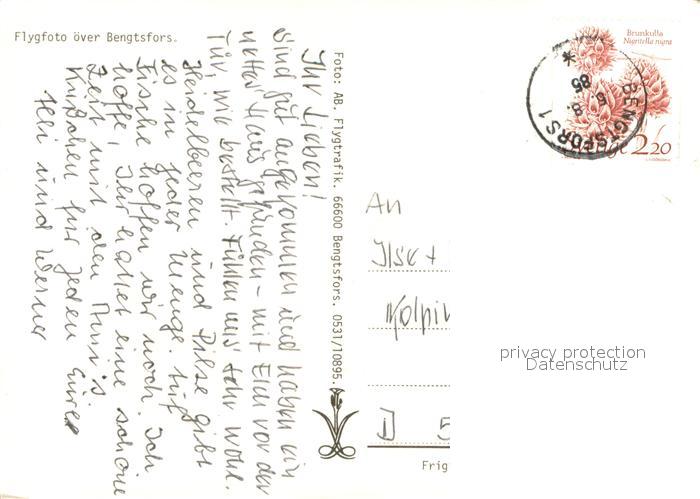 Flygfoto över Bengtsfors.
Ihr Lieben!
Sind gut angekommen und haben ein
nettes Haus gefunden - mit Elch vor der
Tür, wie bestellt. Fühlen uns sehr wohl.
Heidelbeeren und Pilze gibt
es in jeder Menge. Auf
Fische hoffen wir noch. Ich
hoffe, Ihr hattet eine schöne
Zeit mit den
Küßchen für jeden Eure
und Werner
Foto: AB. Flygtrafik. 66600 Bengtsfors. 0531/10895.
An
Ilse +
Kolpin
D 5
Frig
Brunkulla
Nigritella nigra
Sverige 2.20
BENGTSFORS 1
6 8.
85
privacy protection
Datenschutz